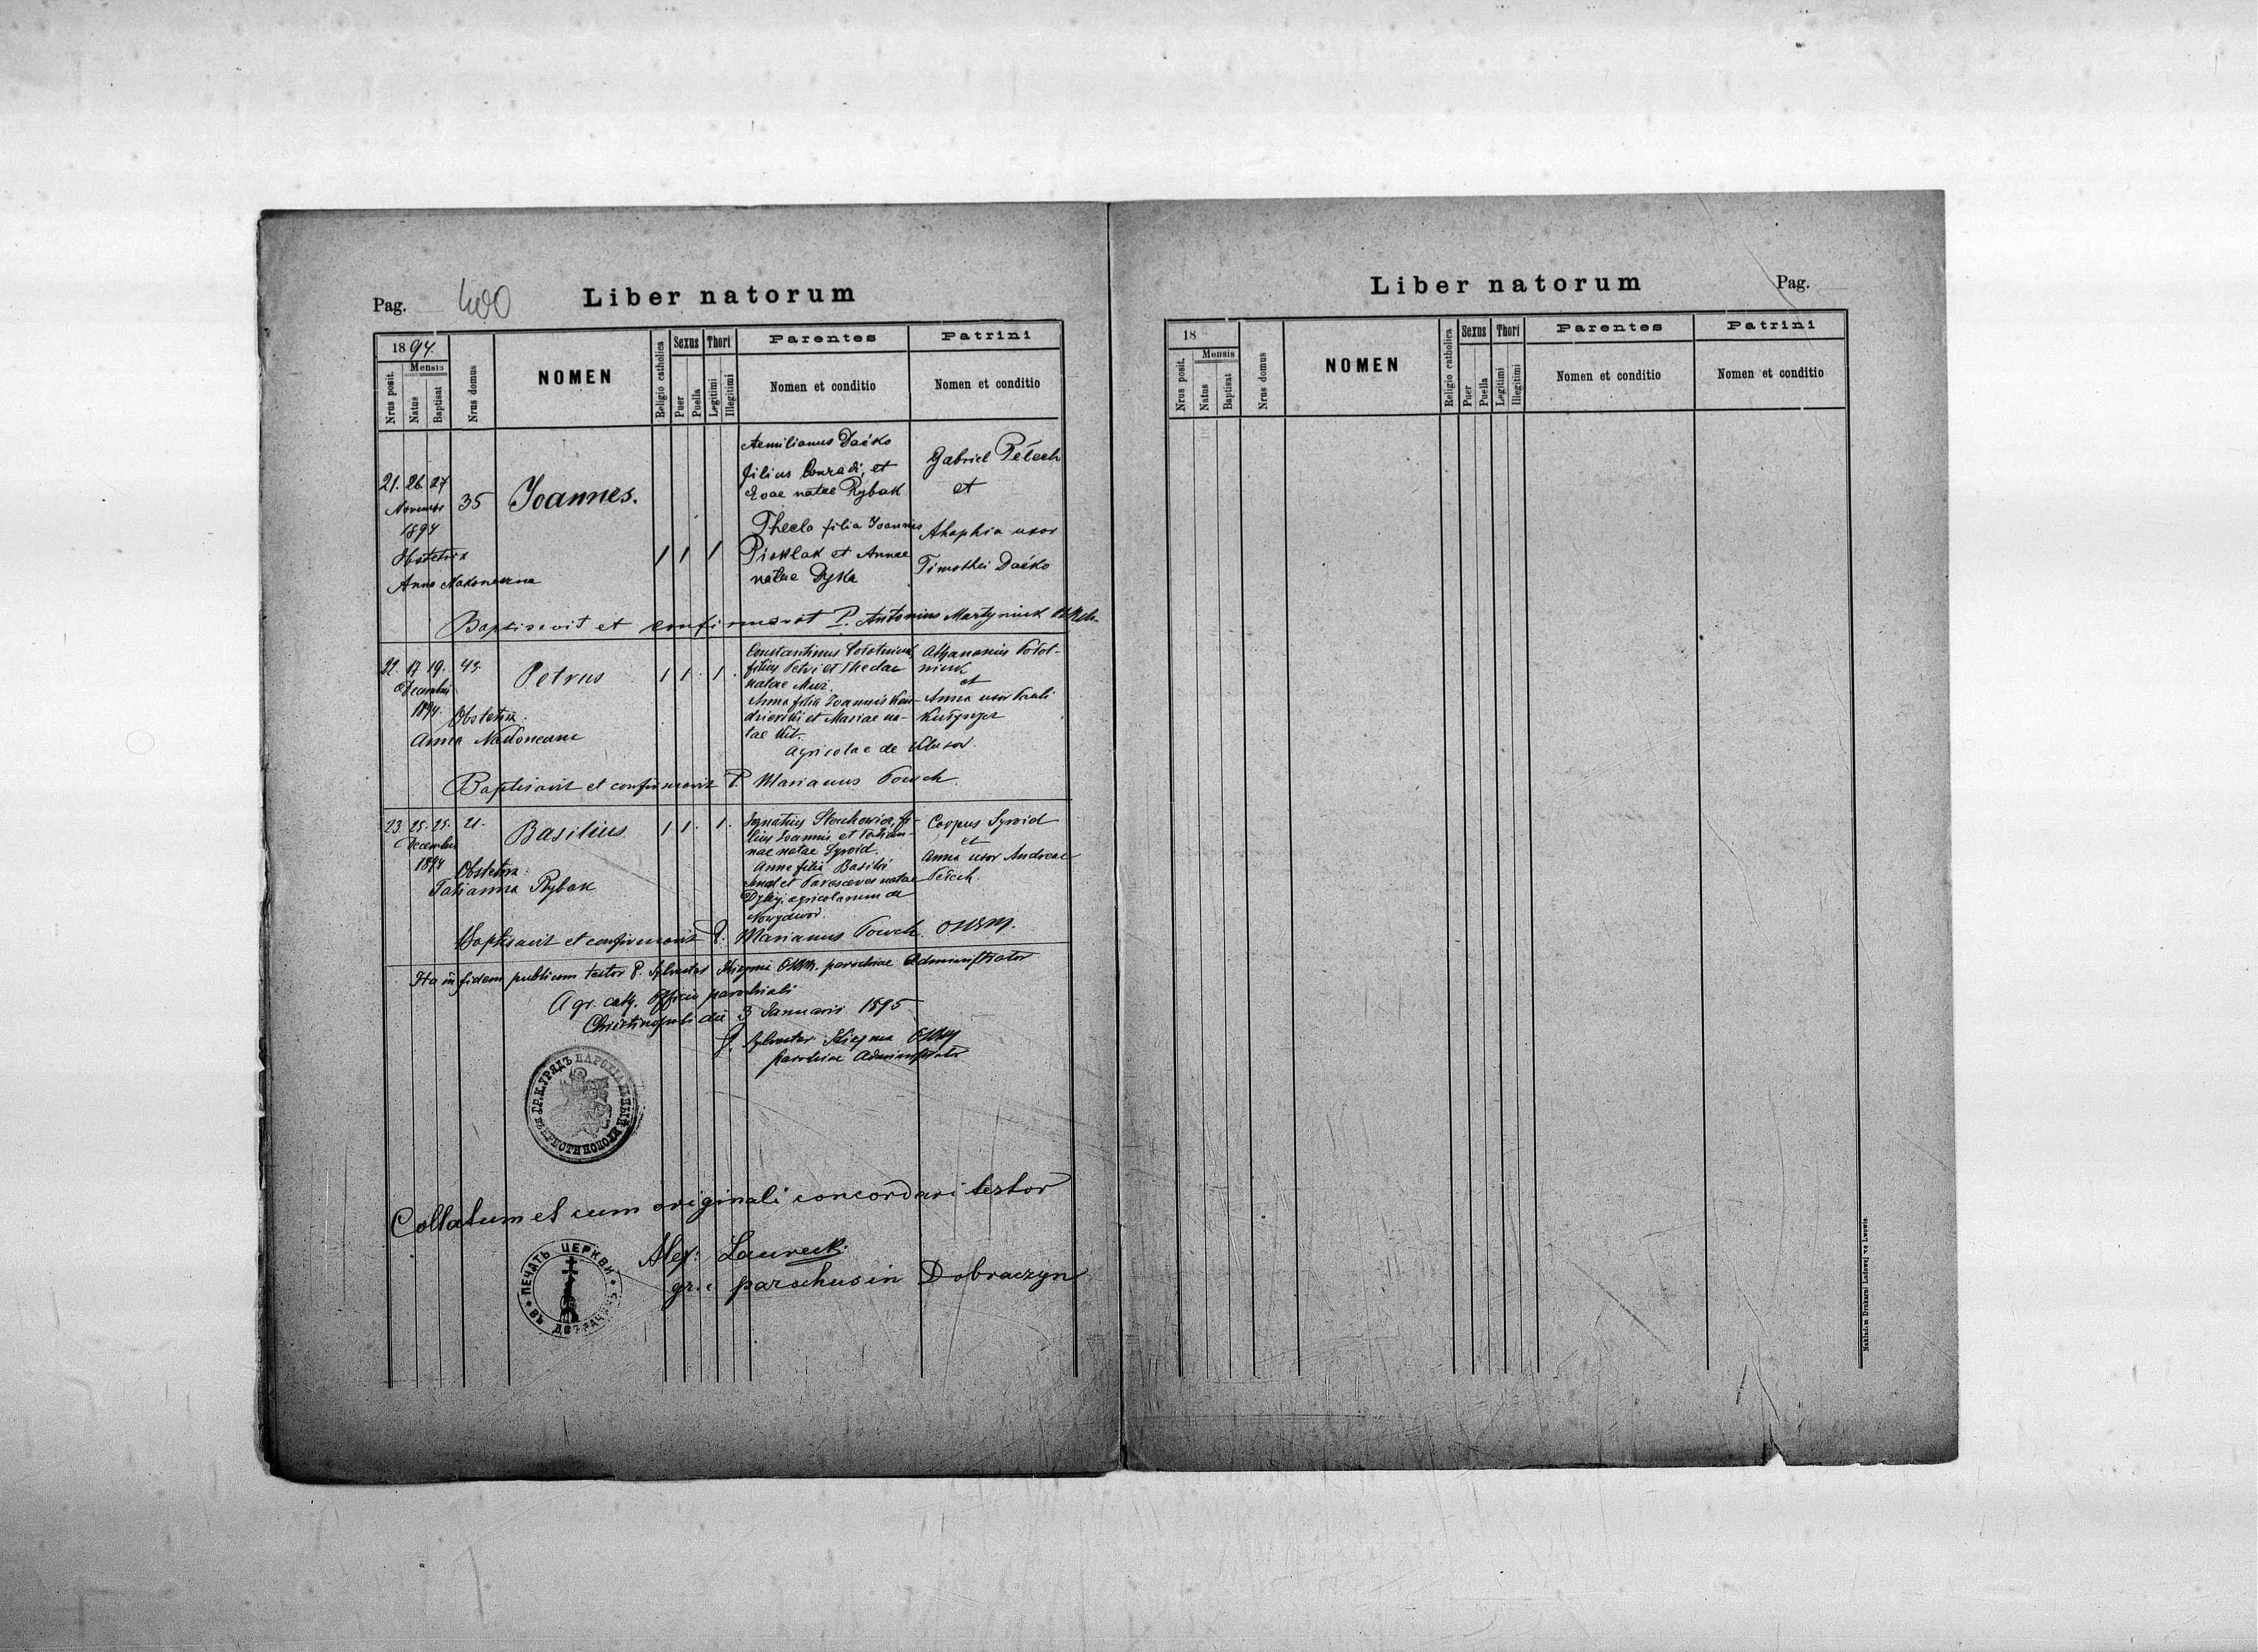 Pag. 400
Liber natorum
1894.
Nrus posit.
Mensis
Natus
Baptisat
Nrus domus
NOMEN
Religio catholica
Sexus
Puer
Puella
Thori
Legitimi
Illegitimi
Parentes
Nomen et conditio
Patrini
Nomen et conditio
21. 26. 27
1894
Obstetrix
Anna
35
Joannes.
1 1 1
Aemilianus Daćko
filius Conradi, et
Evae natae Rybak
Thecla filia Joannis
et Annae
natae Dyka
Gabriel Pełech
et
uxor
Timothei Daćko
Baptisavit et confirmavit P. Antonius Martyniuk
22. 17. 19. 43.
Decembris
1894. Obstetrix:
Anna
Petrus
1 1. 1.
Constantinus
filius Petri et Theclae
natae
Anna filia Joannis
et Mariae na-
tae
Agricolae de
Athanasius
niuk
et
Anna uxor Pauli
Baptisavit et confirmavit P. Marianus
23. 25. 25. 21.
Decembris
1894 Obstetrix:
Tatianna Rybak
Basilius
1 1. 1.
Ignatius fi-
lius Joannis et Tatian-
nae natae Syroid.
Anna filia Basilii
et natae
agricolarum de
Nowydwór.
Carpus Syroid
et
Anna uxor Andreae
Pełech.
Baptisavit et confirmavit P. Marianus OSBM.
Ita in fidem publicam testor P. Sylvester OSBM. parochiae Administrator
A gr. cath. Officio parochiali
Christinopoli die 3 Januarii 1895
P. Sylvester OSBM
parochiae Administrator
Collatum et cum originali concordari testor
Alex: Laurecki
gr. c parochus in Dobraczyn
ПЕЧАТЬ ЦЕРКВИ
Liber natorum
Pag.
18
Nrus posit.
Mensis
Natus
Baptisat
Nrus domus
NOMEN
Religio catholica
Sexus
Puer
Puella
Thori
Legitimi
Illegitimi
Parentes
Nomen et conditio
Patrini
Nomen et conditio
Nakładem Drukarni Ludowej we Lwowie.